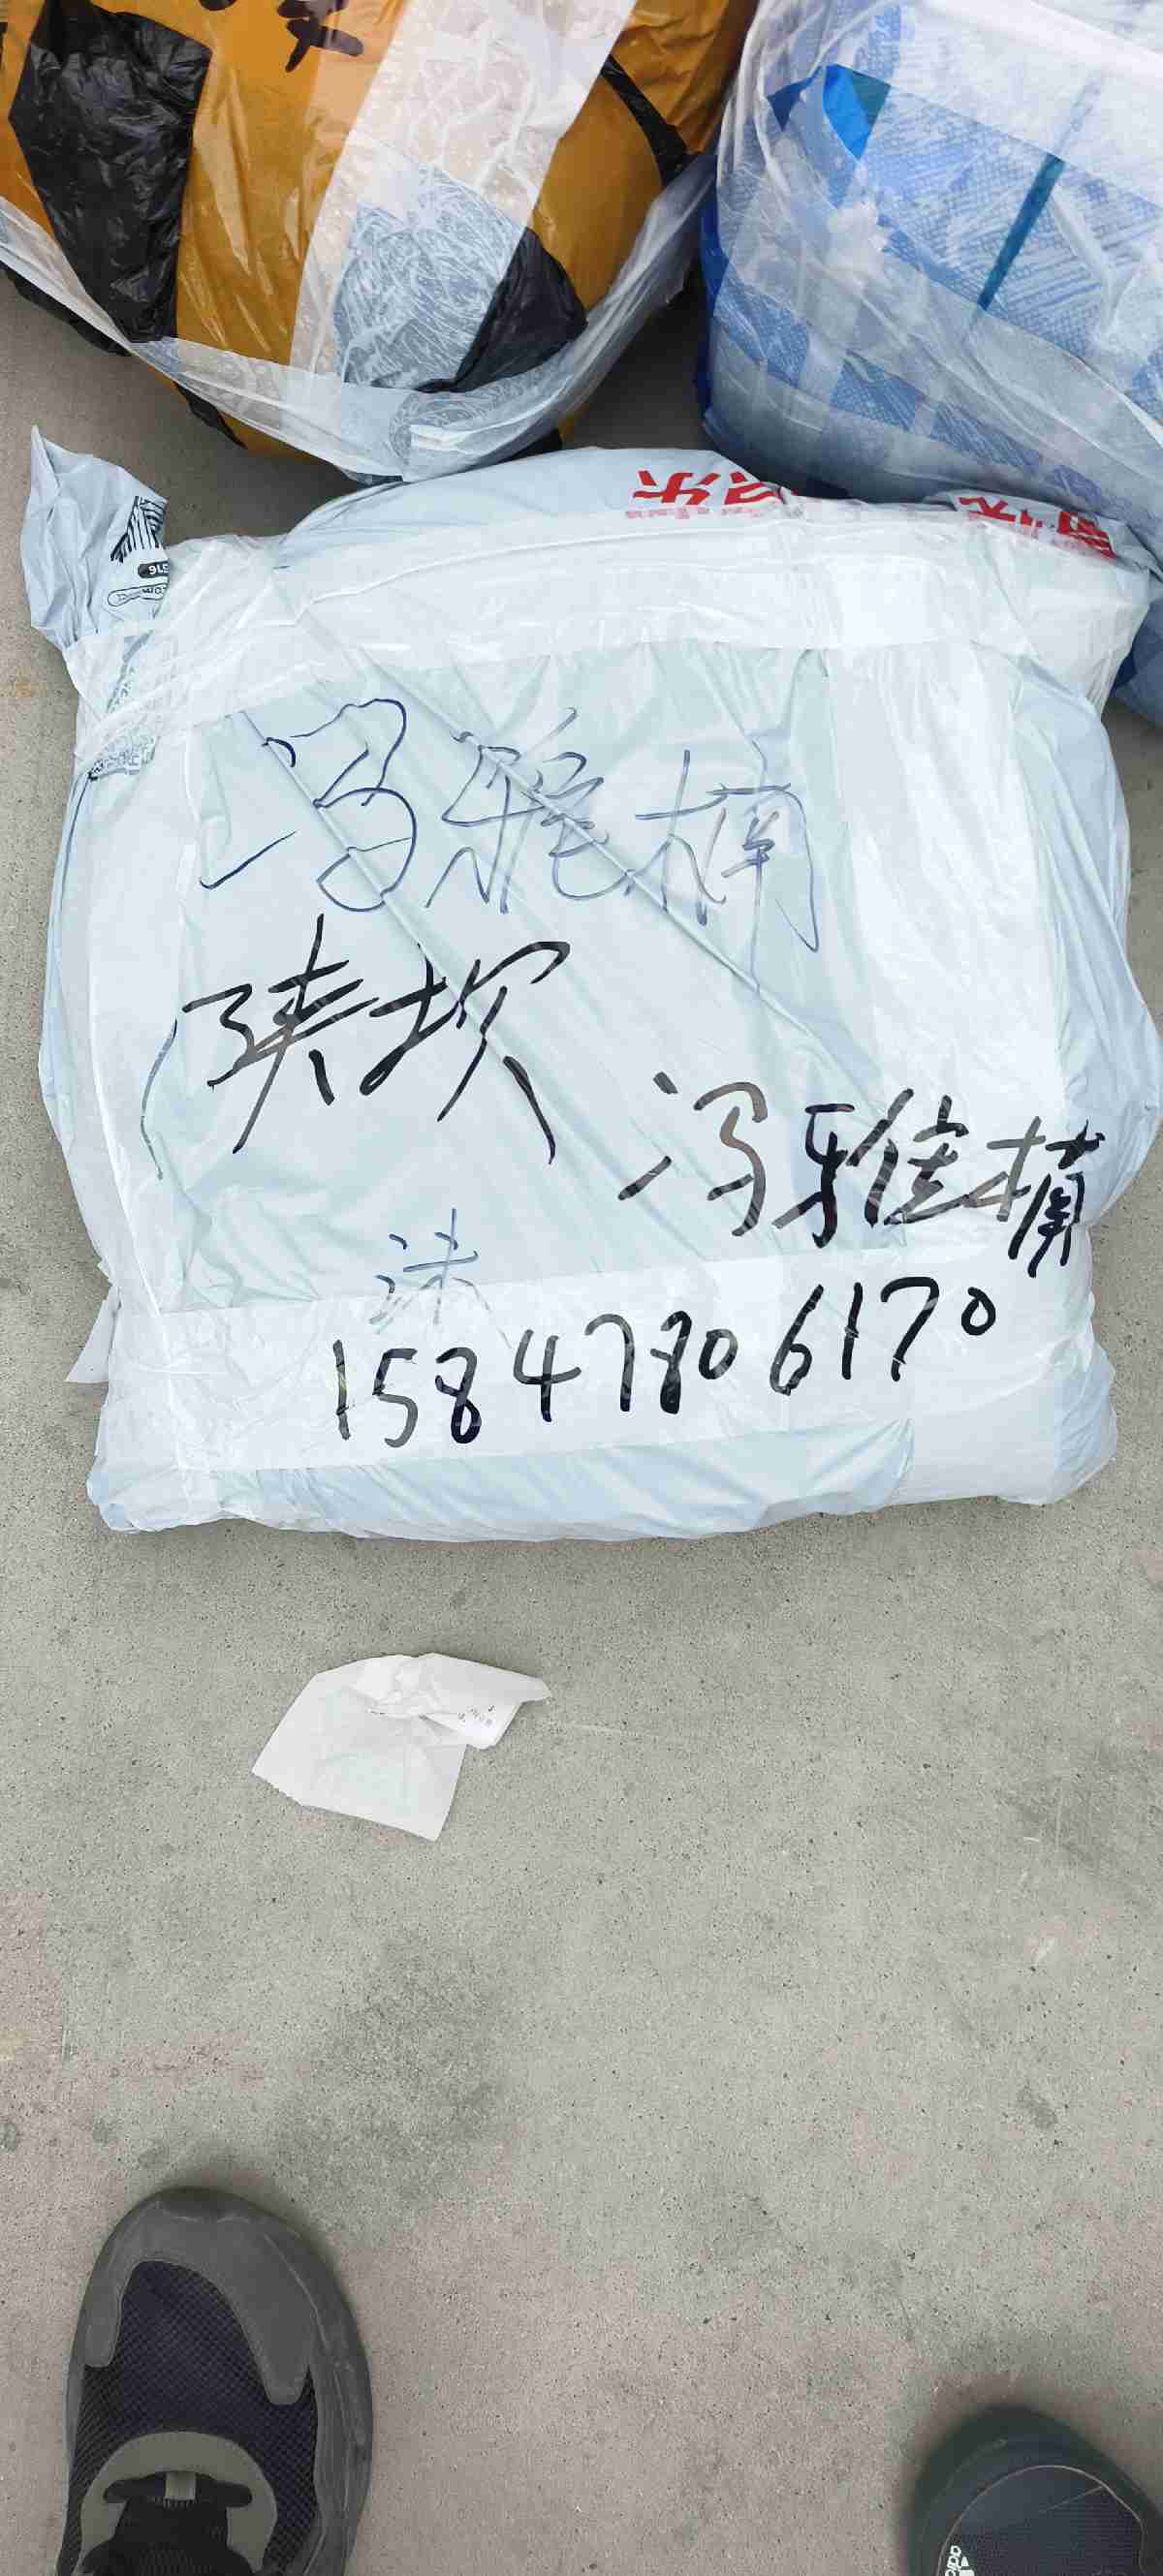 冯雅楠
陕坝
冯雅楠
15847806170